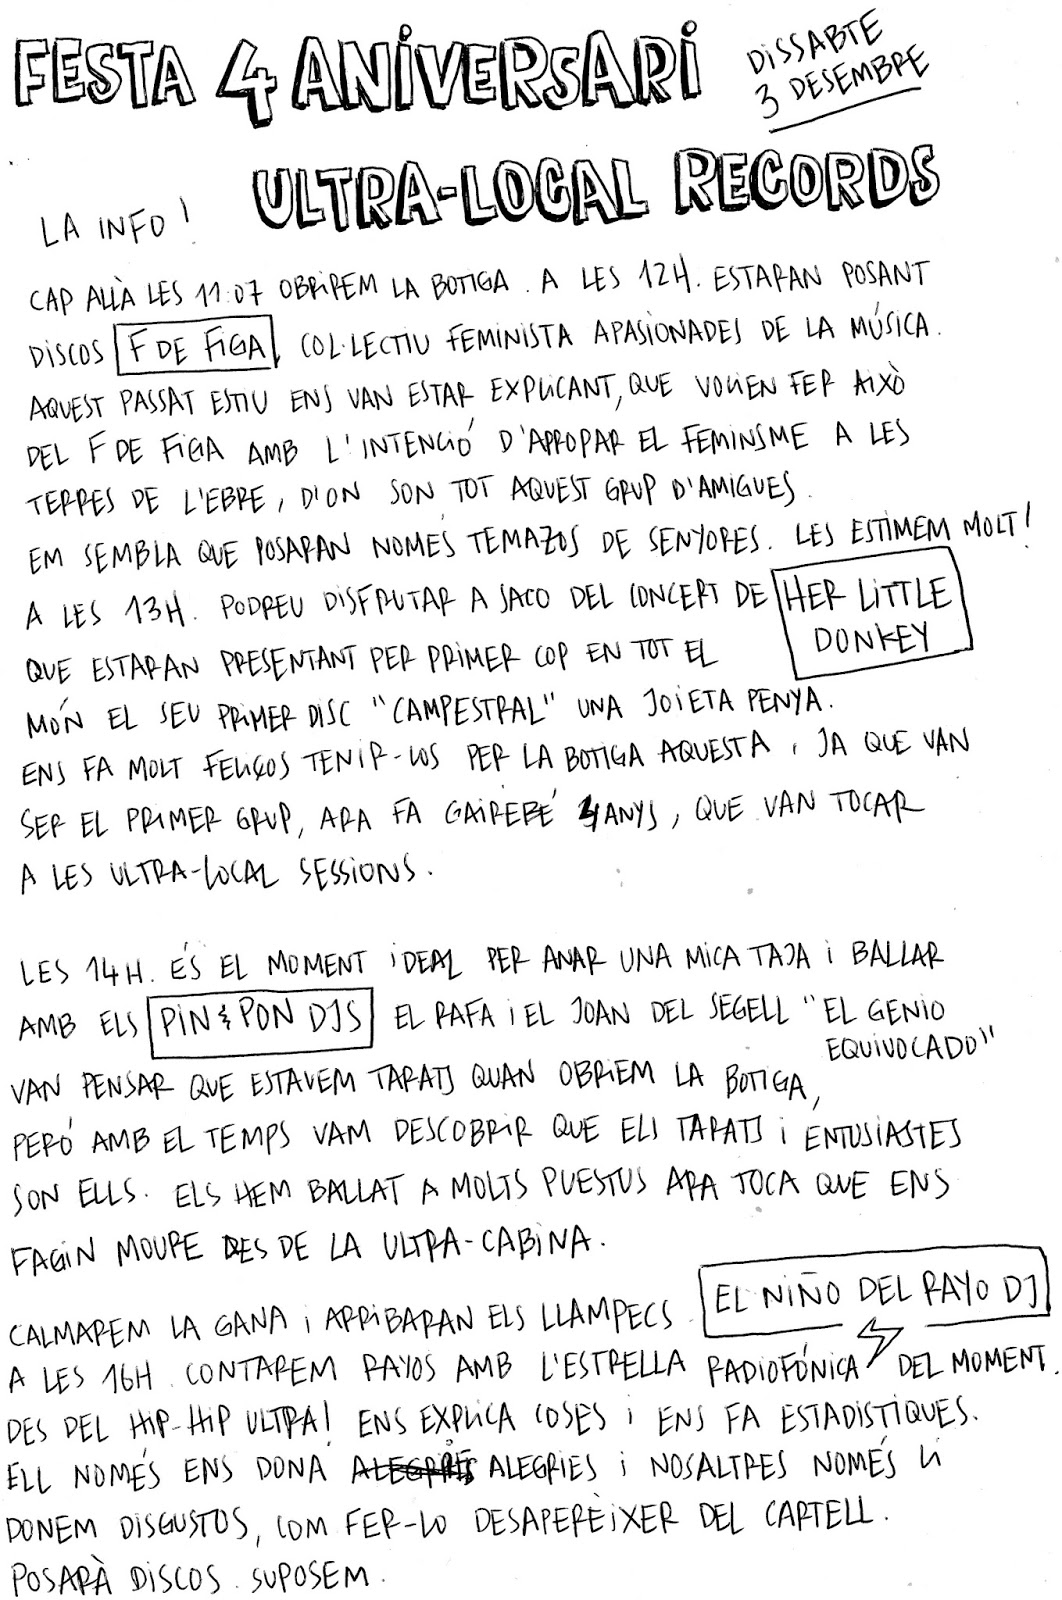 FESTA 4 ANIVERSARI
DISSABTE
3 DESEMBRE
ULTRA-LOCAL RECORDS
LA INFO!
CAP ALLÀ LES 11:07 OBRIREM LA BOTIGA. A LES 12H. ESTARAN POSANT
DISCOS F DE FIGA, COL·LECTIU FEMINISTA APASIONADES DE LA MÚSICA.
AQUEST PASSAT ESTIU ENS VAN ESTAR EXPLICANT, QUE VOLIEN FER AIXÒ
DEL F DE FIGA AMB L'INTENCIÓ D'APROPAR EL FEMINSME A LES
TERRES DE L'EBRE, D'ON SON TOT AQUEST GRUP D'AMIGUES.
EM SEMBLA QUE POSARAN NOMÉS TEMAZOS DE SENYORES. LES ESTIMEM MOLT!
A LES 13H. PODREU DISFRUTAR A SACO DEL CONCERT DE HER LITTLE
DONKEY
QUE ESTARAN PRESENTANT PER PRIMER COP EN TOT EL
MÓN EL SEU PRIMER DISC "CAMPESTRAL" UNA JOIETA PENYA.
ENS FA MOLT FELIÇOS TENIR-LOS PER LA BOTIGA AQUESTA, JA QUE VAN
SER EL PRIMER GRUP, ARA FA GAIREBÉ 4 ANYS, QUE VAN TOCAR
A LES ULTRA-LOCAL SESSIONS.
LES 14H. ÉS EL MOMENT IDEAL PER ANAR UNA MICA TAJA I BALLAR
AMB ELS PIN & PON DJS EL RAFA I EL JOAN DEL SEGELL "EL GENIO
EQUIVOCADO"
VAN PENSAR QUE ESTAVEM TARATS QUAN OBRIEM LA BOTIGA,
PERÓ AMB EL TEMPS VAM DESCOBRIR QUE ELS TARATS I ENTUSIASTES
SON ELLS. ELS HEM BALLAT A MOLTS PUESTUS ARA TOCA QUE ENS
FAGIN MOURE DES DE LA ULTRA-CABINA.
CALMAREM LA GANA I ARRIBARAN ELS LLAMPECS. EL NIÑO DEL RAYO DJ
A LES 16H. CONTAREM RAYOS AMB L'ESTRELLA RADIOFÓNICA DEL MOMENT.
DES DEL HIP-HIP ULTRA! ENS EXPLICA COSES I ENS FA ESTADISTIQUES.
ELL NOMÉS ENS DONA ALEGRIES I NOSALTRES NOMÉS LI
DONEM DISGUSTOS, COM FER-LO DESAPERÈIXER DEL CARTELL.
POSARÀ DISCOS. SUPOSEM.